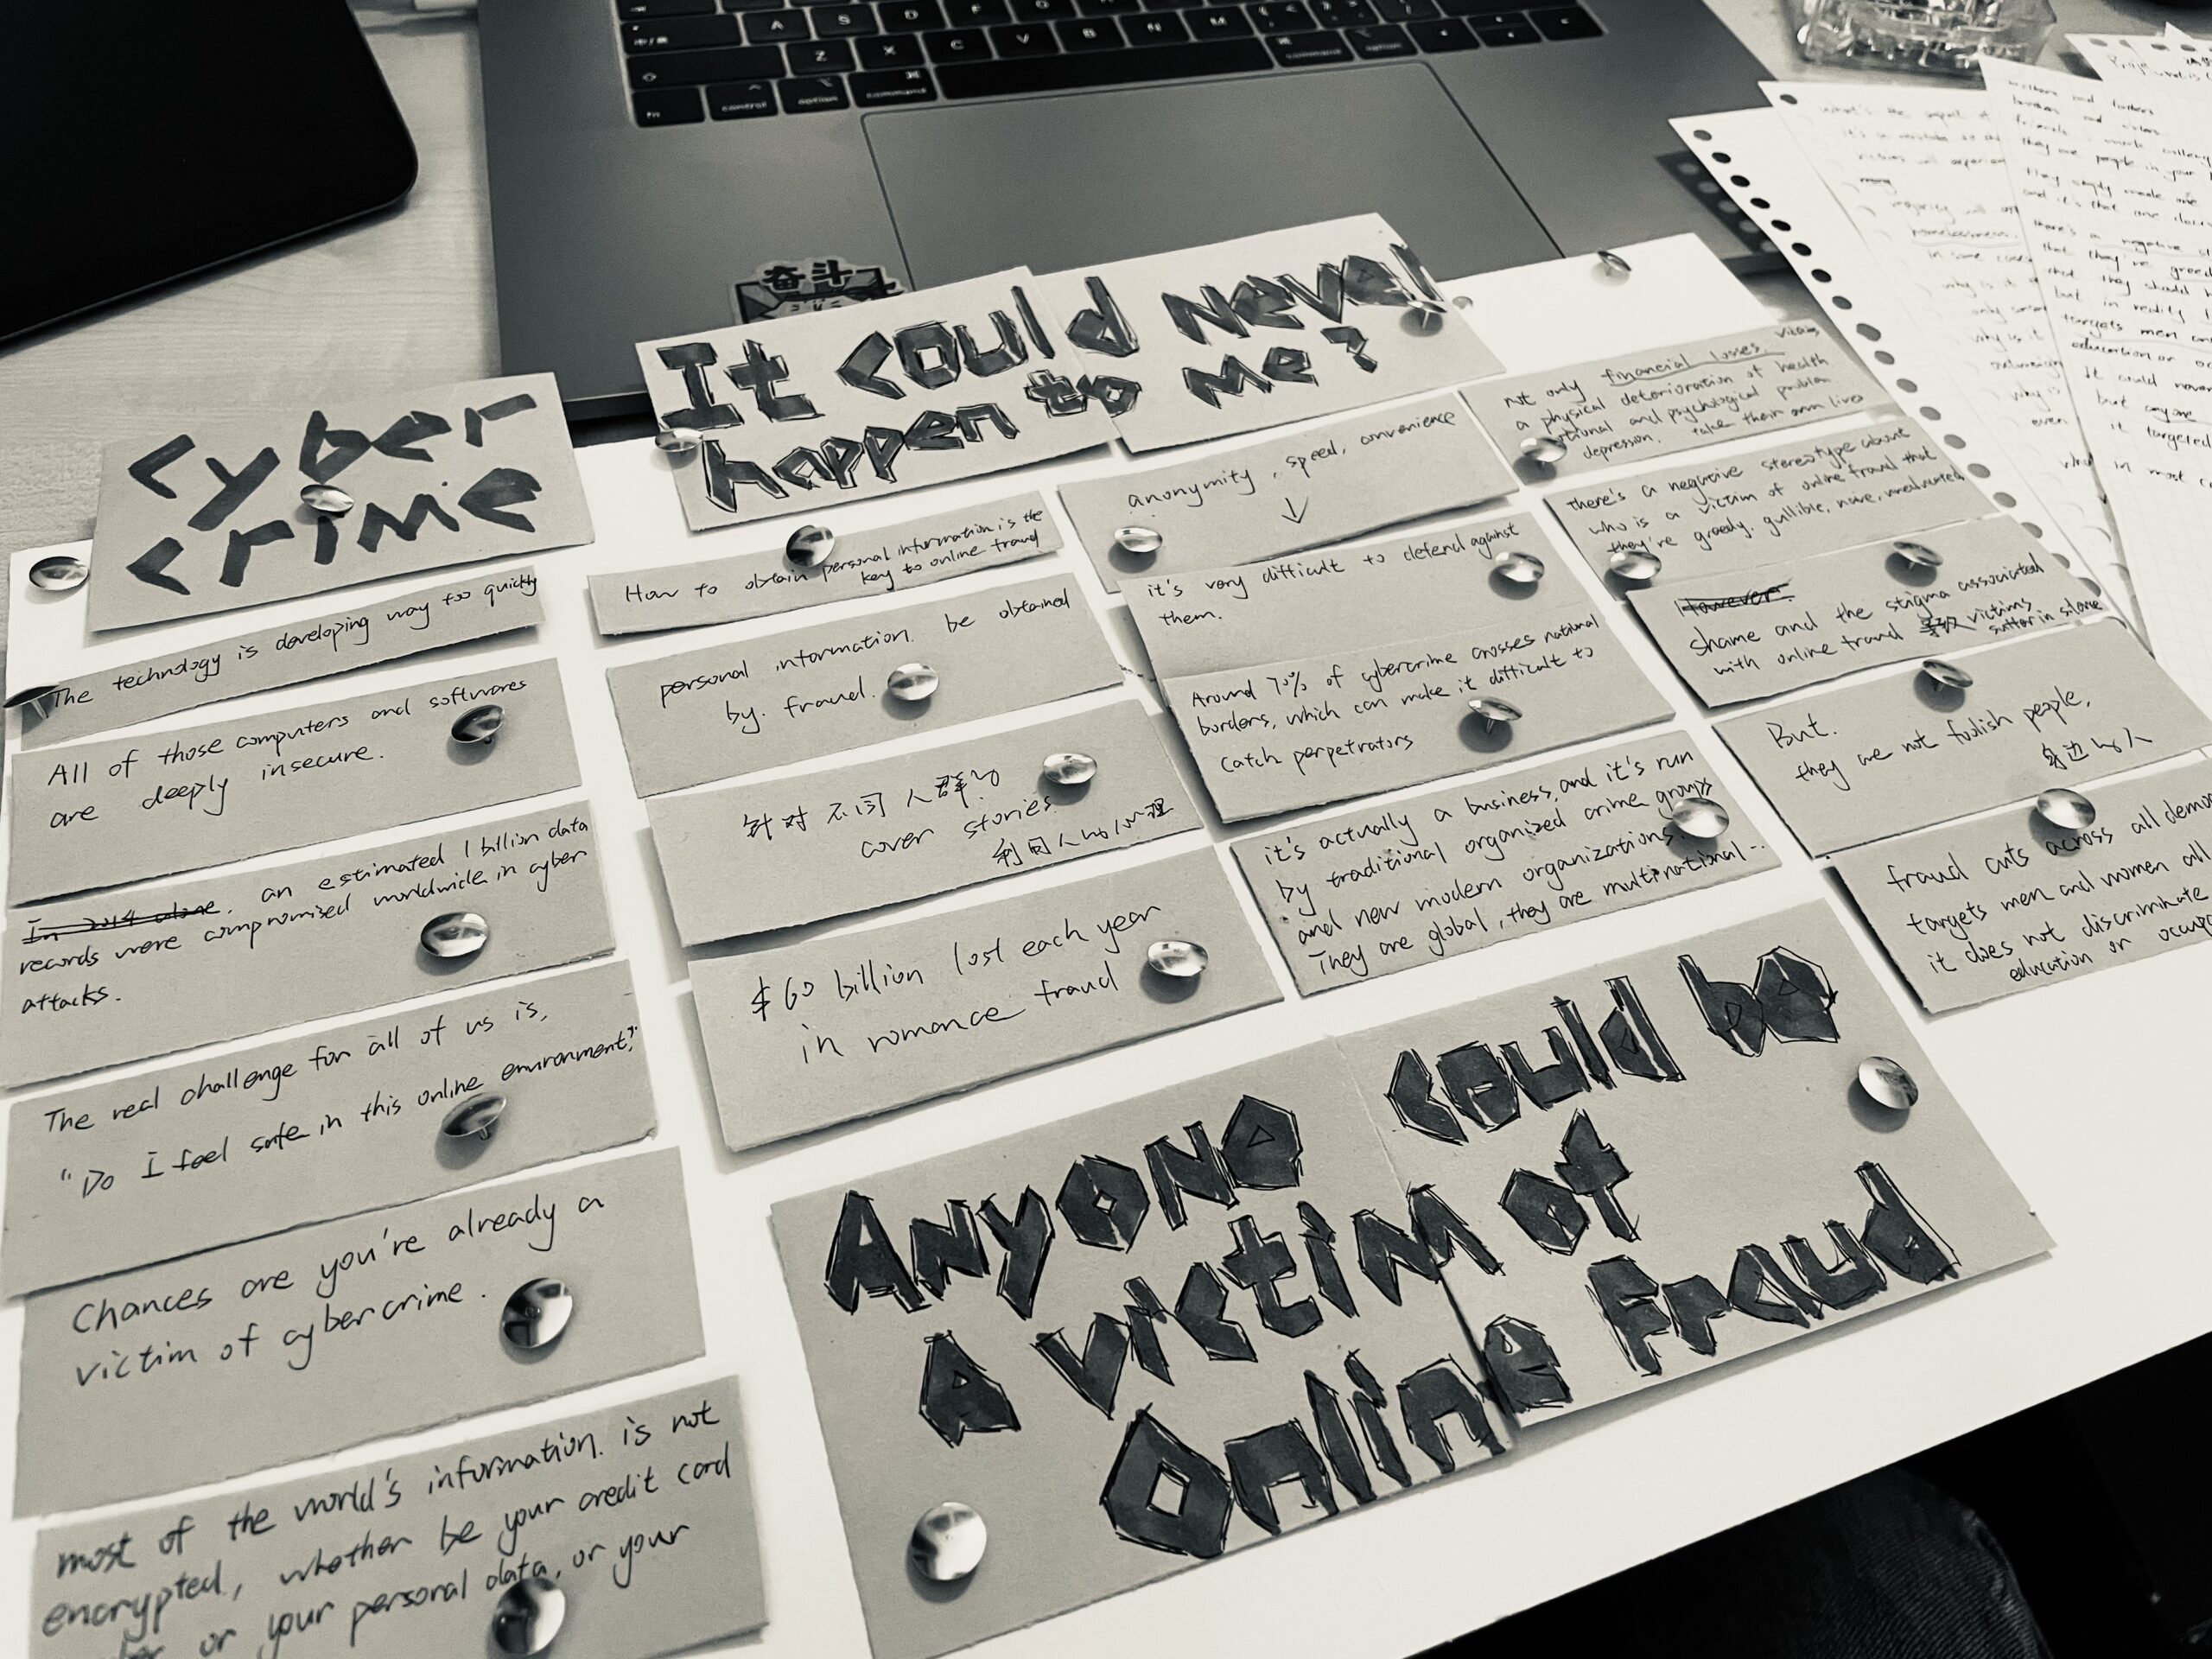 A
S
D
F
G
H
J
K
L
Z
X
C
V
B
N
M
fn
control
option
command
command
option
奋斗
Cyber
crime
The technology is developing way too quickly
All of those computers and softwares
are deeply insecure.
In 2014 alone, an estimated 1 billion data
records were compromised worldwide in cyber
attacks.
The real challenge for all of us is,
"Do I feel safe in this online environment?"
Chances are you're already a
victim of cybercrime.
most of the world's information. is not
encrypted, whether be your credit card
or your personal data, or your
It could never
happen to me?
How to obtain personal information is the
key to online fraud
personal information. be obtained
by. fraud.
针对不同人群的
cover stories
利用人的心理
$60 billion lost each year
in romance fraud
anonymity, speed, convenience
↓
it's very difficult to defend against
them.
Around 70% of cybercrime crosses national
borders, which can make it difficult to
catch perpetrators
it's actually a business, and it's run
by traditional organized crime groups
and new modern organizations
They are global, they are multinational...
not only financial losses.
a physical deterioration of health
and psychological problem
depression. take their own lives
there's a negative stereotype about
who is a victim of online fraud that
they're greedy. gullible, naive, uneducated
However.
shame and the stigma associated
with online fraud 导致 victims
suffer in silence
But.
they are not foolish people,
身边的人
fraud cuts across all
targets men and women all
it does not discriminate
education or
Anyone could be
A victim of
Online Fraud
mothers and fathers
brothers and sisters
friends
they are people in your
they simply made one
and it's that one
there's a negative
that they're greed
that they should
but in reality
targets men
education or
It could never
but anyone
it targeted
in most
why is it
only
why is it
why is
even